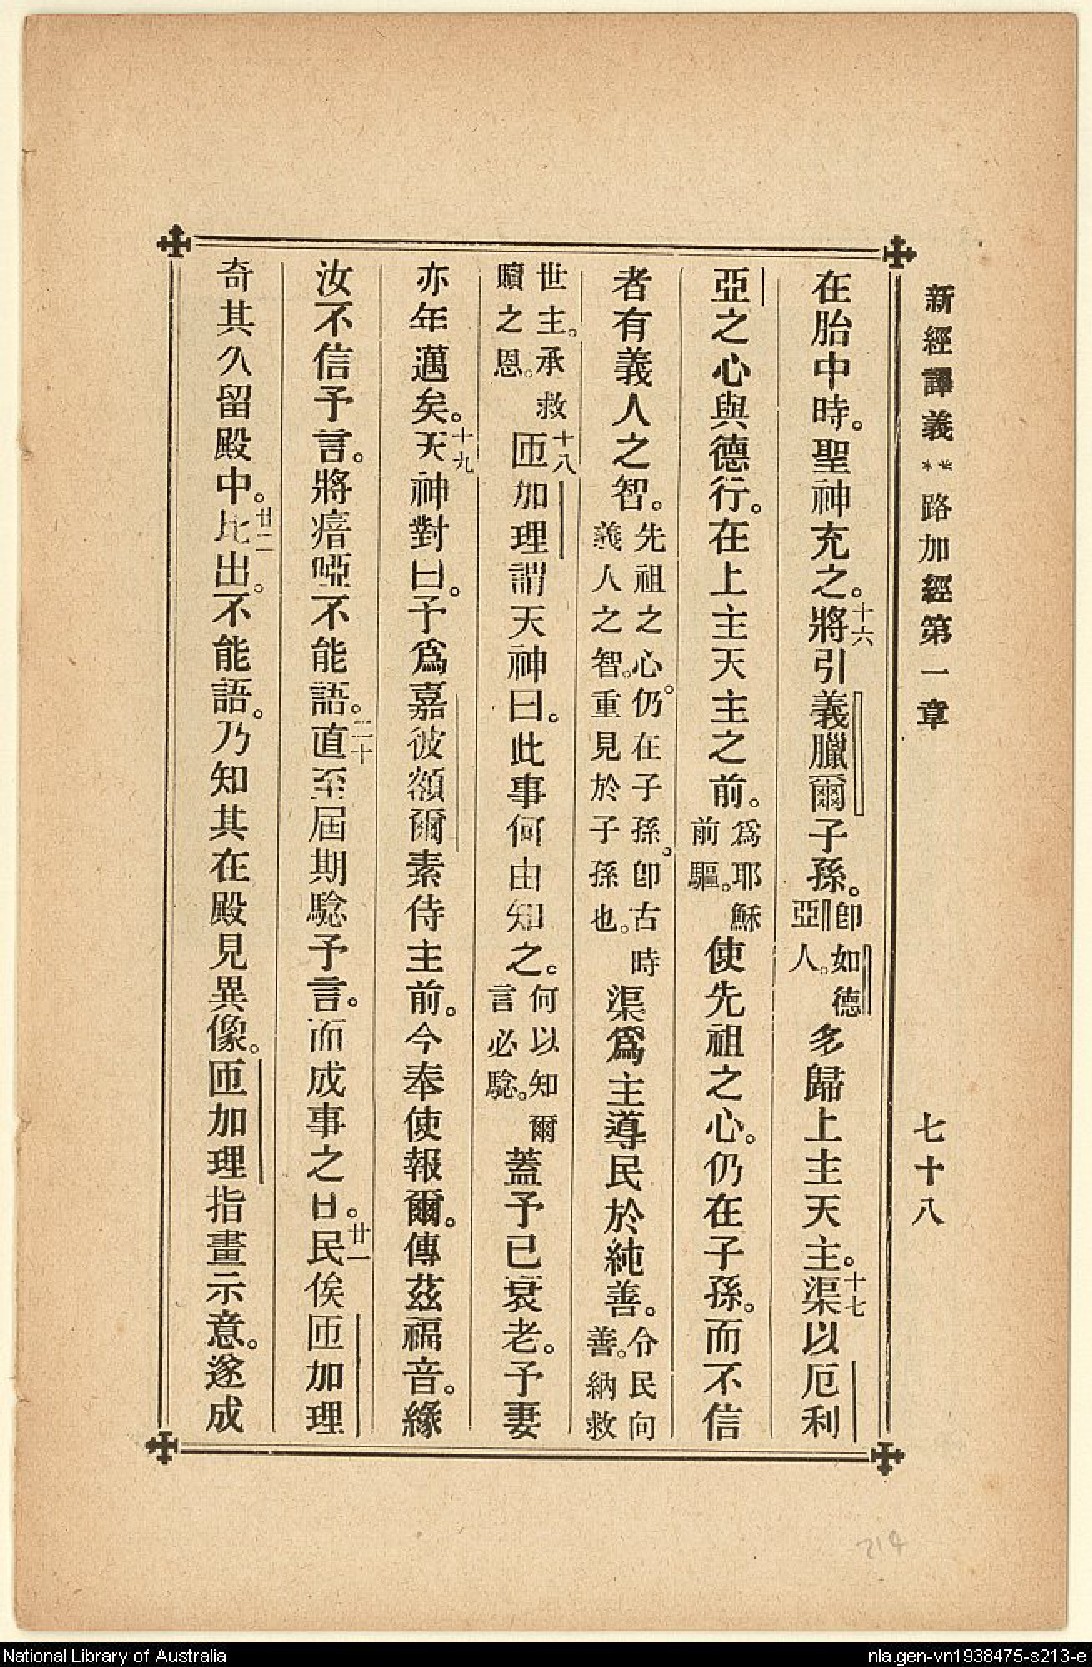 新經譯義 路加經第一章 七十八
在胎中時。聖神充之。十六將引義臘爾子孫。卽如德亞人。多歸上主天主。十七渠以厄利
亞之心與德行。在上主天主之前。爲耶穌前驅。使先祖之心。仍在子孫。而不信
者有義人之智。先祖之心。仍在子孫。卽古時義人之智。重見於子孫也。渠爲主導民於純善。令民向善。納救
世主。承救贖之恩。十八匝加理謂天神曰。此事何由知之。何以知爾言必騐。蓋予已衰老。予妻
亦年邁矣。十九天神對曰。予爲嘉彼額爾素侍主前。今奉使報爾。傳茲福音。緣
汝不信予言。將瘖啞不能語。二十直至屆期騐予言。而成事之日。廿一民俟匝加理
奇其久留殿中。廿二比出。不能語。乃知其在殿見異像。匝加理指畫示意。遂成
214
National Library of Australia
nla.gen-vn1938475-s213-e